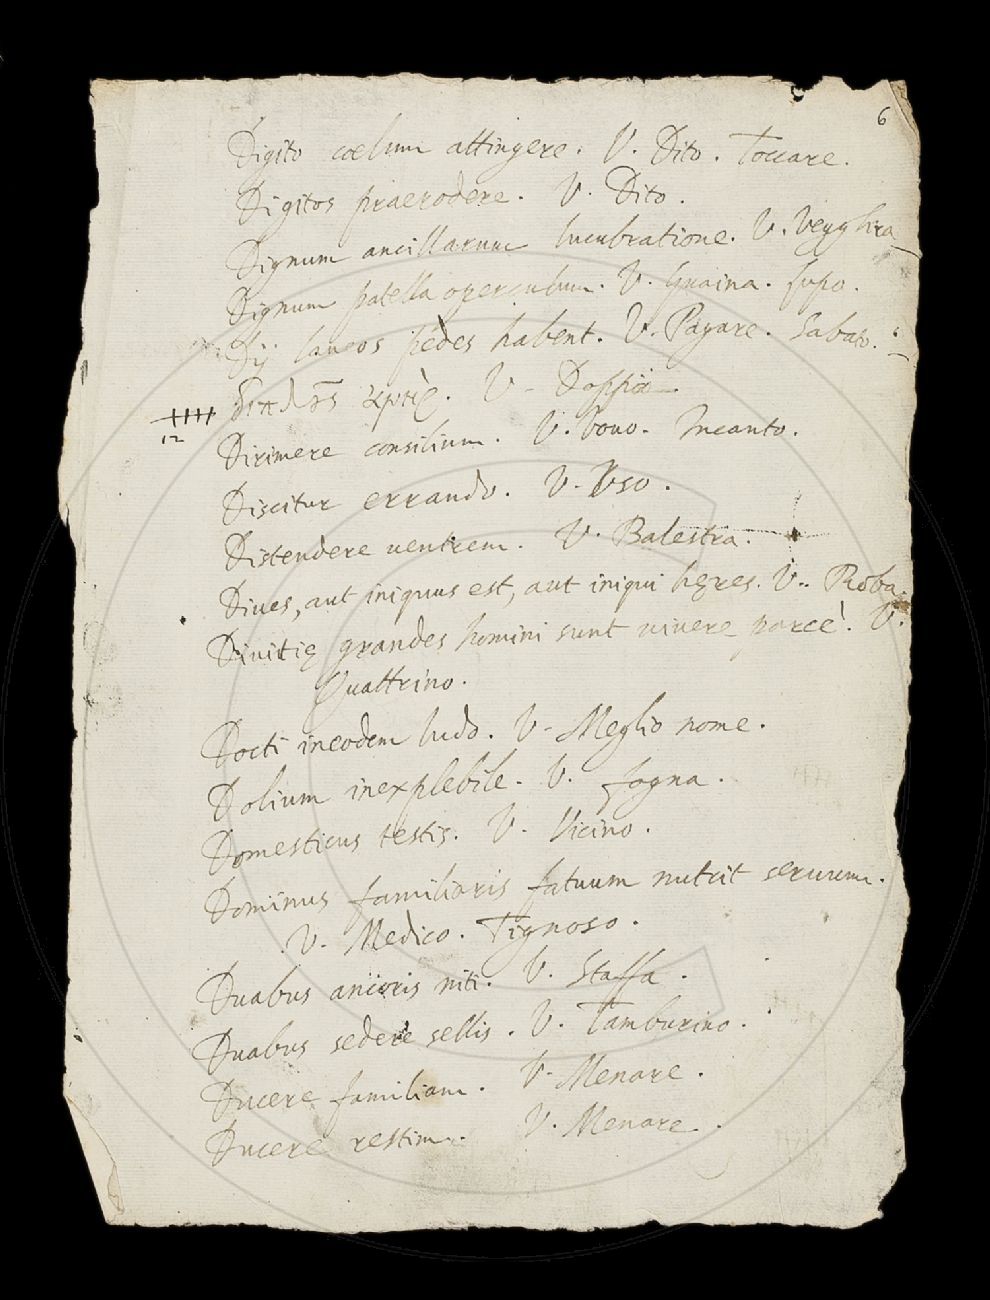 6
Digito coelum attingere. V. Dito. Toccare.
Digitos praerodere. V. Dito.
Dignum ancillarum lucubratione. V. Vegghia
Dignum patella operculum. V. Guaina. Lupo.
Dij laneos pedes habent. V. Pagare. Sabato.
V. Doppia
12
Dirimere consilium. V. Vovo. Incanto.
Discitur errando. V. Vso.
Distendere uentrem. V. Balestra.
Diues, aut iniquus est, aut iniqui hęres. V. Roba.
Divitię grandes homini sunt uiuere parcè. V.
Quattrino.
Docti ineodem ludo. V. Meglio nome.
Dolium inexplebile. V. fogna.
Domesticus testis. V. Vicino.
Dominus familiaris fatuum nutrit seruum.
V. Medico. Tignoso.
Duabus ancoris niti. V. Staffa.
Duabus sedere sellis. V. Tamburino.
Ducere familiam. V. Menare.
Ducere restim. V. Menare.